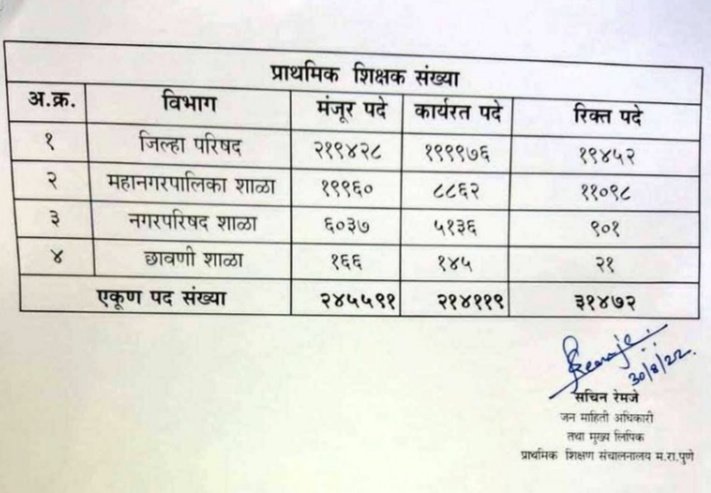 प्राथमिक शिक्षक संख्या
अ.क्र. विभाग मंजूर पदे कार्यरत पदे रिक्त पदे
१ जिल्हा परिषद २१९४२८ १९९९७६ १९४५२
२ महानगरपालिका शाळा १९९६० ८८६२ ११०९८
३ नगरपरिषद शाळा ६०३७ ५१३६ ९०१
४ छावणी शाळा १६६ १४५ २१
एकूण पद संख्या २४५५९१ २१४११९ ३१४७२
30/8/22
सचिन रेमजे
जन माहिती अधिकारी
तथा मुख्य लिपिक
प्राथमिक शिक्षण संचालनालय म.रा.पुणे